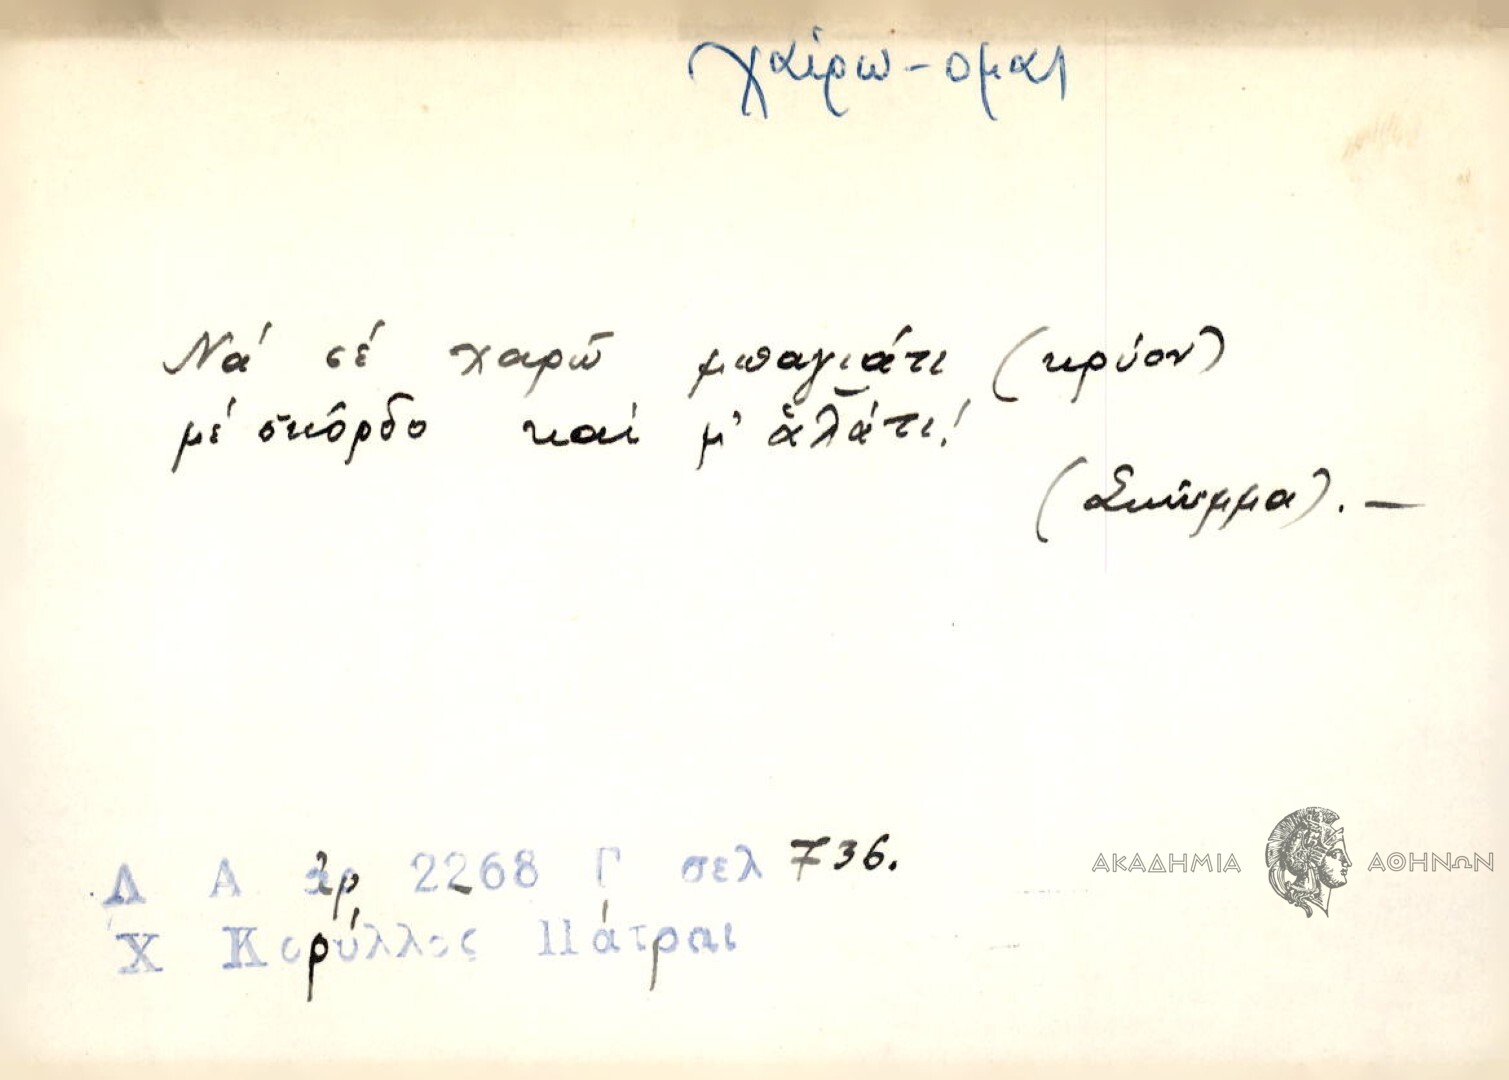 χαίρω-ομαι
Νά σέ χαρῶ μπαγιάτι (κρύον)
μέ σκόρδο καί μ' ἁλάτι!
(Σκῶμμα). —
Λ Α ἀρ 2268 Γ σελ 736.
Χ Κορύλλος Πάτραι
ΑΚΑΔΗΜΙΑ ΑΘΗΝΩΝ